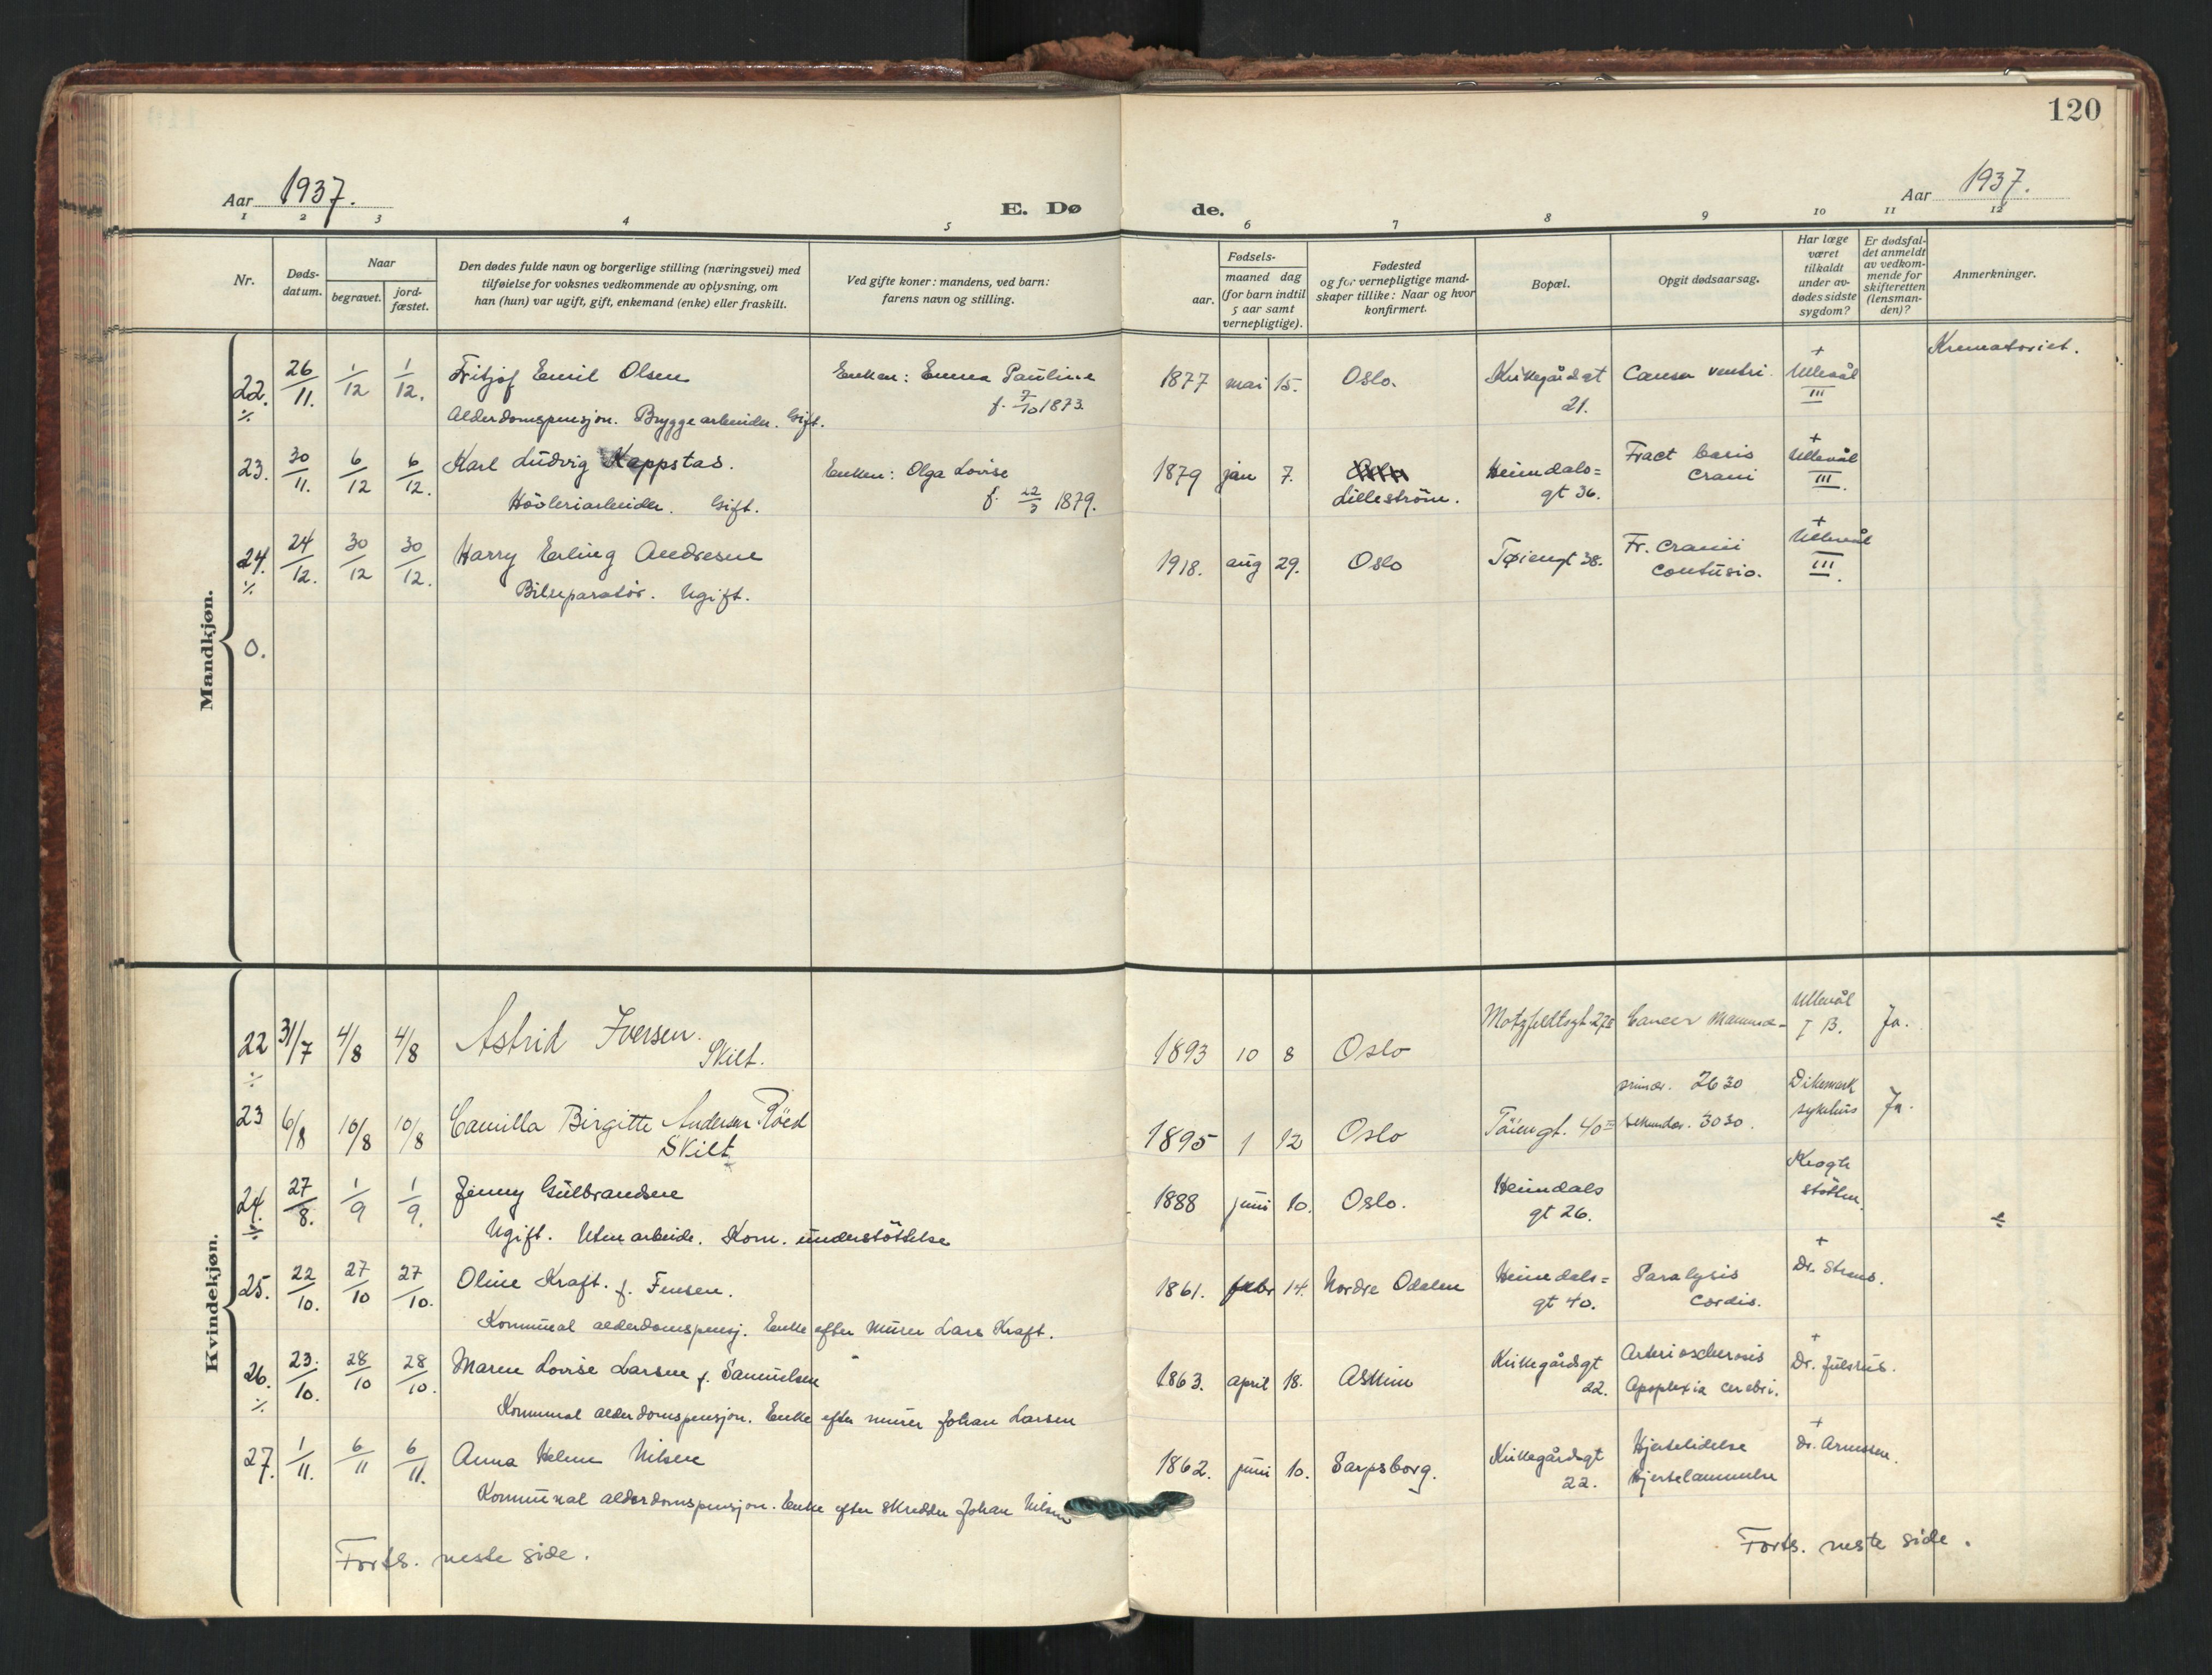 120
Aar 1937.
E. Dø de.
Aar 1937.
1 2 3 4 5 6 7 8 9 10 11 12
Nr.
Døds-
datum.
Naar
begravet.
jord-
fæstet.
Den dødes fulde navn og borgerlige stilling (næringsvei) med
tilføielse for voksnes vedkommende av oplysning, om
han (hun) var ugift, gift, enkemand (enke) eller fraskilt.
Ved gifte koner: mandens, ved barn:
farens navn og stilling.
Fødsels-
aar.
maaned dag
(for barn indtil
5 aar samt
vernepligtige).
Fødested
og for vernepligtige mand-
skaper tillike: Naar og hvor
konfirmert.
Bopæl.
Opgit dødsaarsag.
Har læge
været
tilkaldt
under av-
dødes sidste
sygdom?
Er dødsfal-
det anmeldt
av vedkom-
mende for
skifteretten
(lensman-
den)?
Anmerkninger.
Mandkjøn.
22. 26/11. 1/12 1/12. Fritjof Emil Olsen Enken: Emma Pauline 1877 mai 15. Oslo. Kirkegårdsgt Cancer ventri. + Ullevål Krematoriet.
÷ Alderdomspensjon. Bryggearbeider. Gift. f. 7/10 1873 21. III
23. 30/11. 6/12 6/12. Karl Ludvig Kappstad. Enken: Olga Lovise 1879 jan 7. Heimdals= Fract basis + Ullevål
Høvleriarbeider. Gift. f. 22/3 1879. Lillestrøm. gt 36. Crani III.
24. 24/12. 30/12 30/12. Harry Erling Andresen 1918. aug 29. Oslo Tøiengt 38. Fr. cranii + Ullevål
÷ Bilreparatør. Ugift. contusio. III.
0.
Kvindekjøn.
22 31/7 4/8 4/8 Astrid Iversen. 1893 10 8 Oslo Motzfeldtsgt 27 Cancer mamma- Ullevål I B. Ja.
÷ Skilt.
23 6/8 10/8 10/8 Camilla Birgitte Andersen Röed 1895 1 12 Oslo Töiengt. 40 primær. 2630 Dikemark Ja.
Skilt Sekundær. 3030. sykehus
24. 27/8. 1/9 1/9. Jenny Gulbrandsen 1888 juni 10. Oslo. Heimdals Krogh
÷ Ugift. Uten arbeide. Kom. understöttelse gt 26. stötten ÷
25. 22/10. 27/10 27/10. Oline Kraft. f. Jensen. 1861. febr 14. Nordre Odalen Heimdals= Paralysis + Dr. Strøm.
Kommunal alderdomspensj. Enke efter murer Lars Kraft. gt 40. Cordis.
26. 23./10. 28/10 28/10. Maren Lovise Larsen f. Samuelsen 1863. april 18. Askim Kirkegårdsgt Arteriosclerosis + Dr. Julsrud.
÷ Kommunal alderdomspensjon. Enke efter murer Johan Larsen 22. Apoplexia cerebri.
27. 1/11. 6/11 6/11. Anna Helene Nilsen 1862. juni 10. Sarpsborg. Kirkegårdsgt Hjertelidelse + Dr. Arnesen.
Kommunal alderdomspensjon. Enke efter skredder Johan Nilsen 22. Hjertelammelse
Forts. neste side. Forts. neste side.